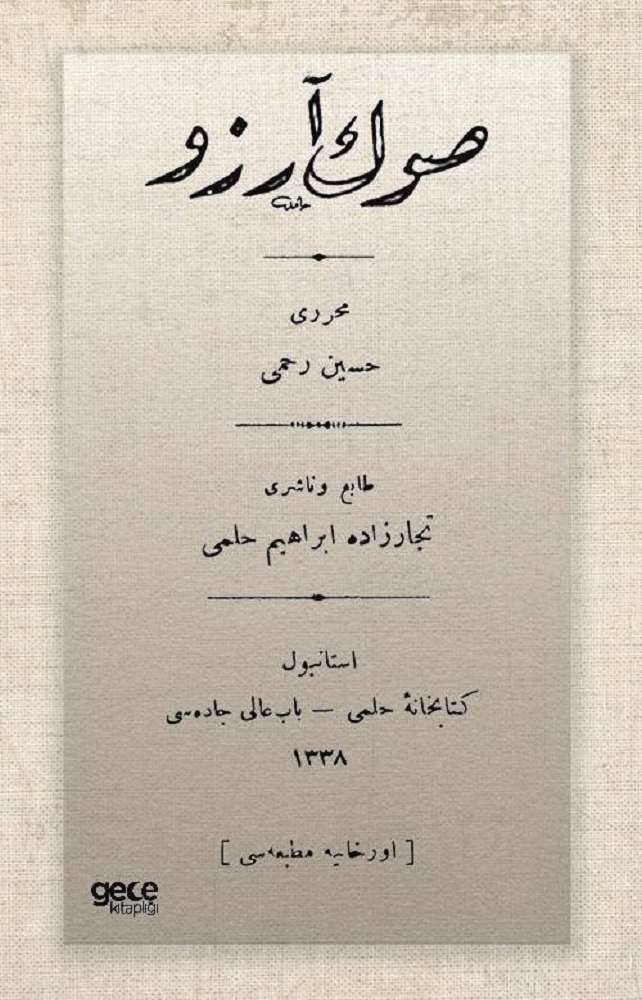 صوك آرزو
حامد
محرری
حسین رحمی
طابع وناشری
تجارزاده ابراهیم حلمی
استانبول
کتابخانهٔ حلمی — باب عالی جاده‌سی
١٣٣٨
[ اورخانیه مطبعه‌سی ]
gece
kitaplığı